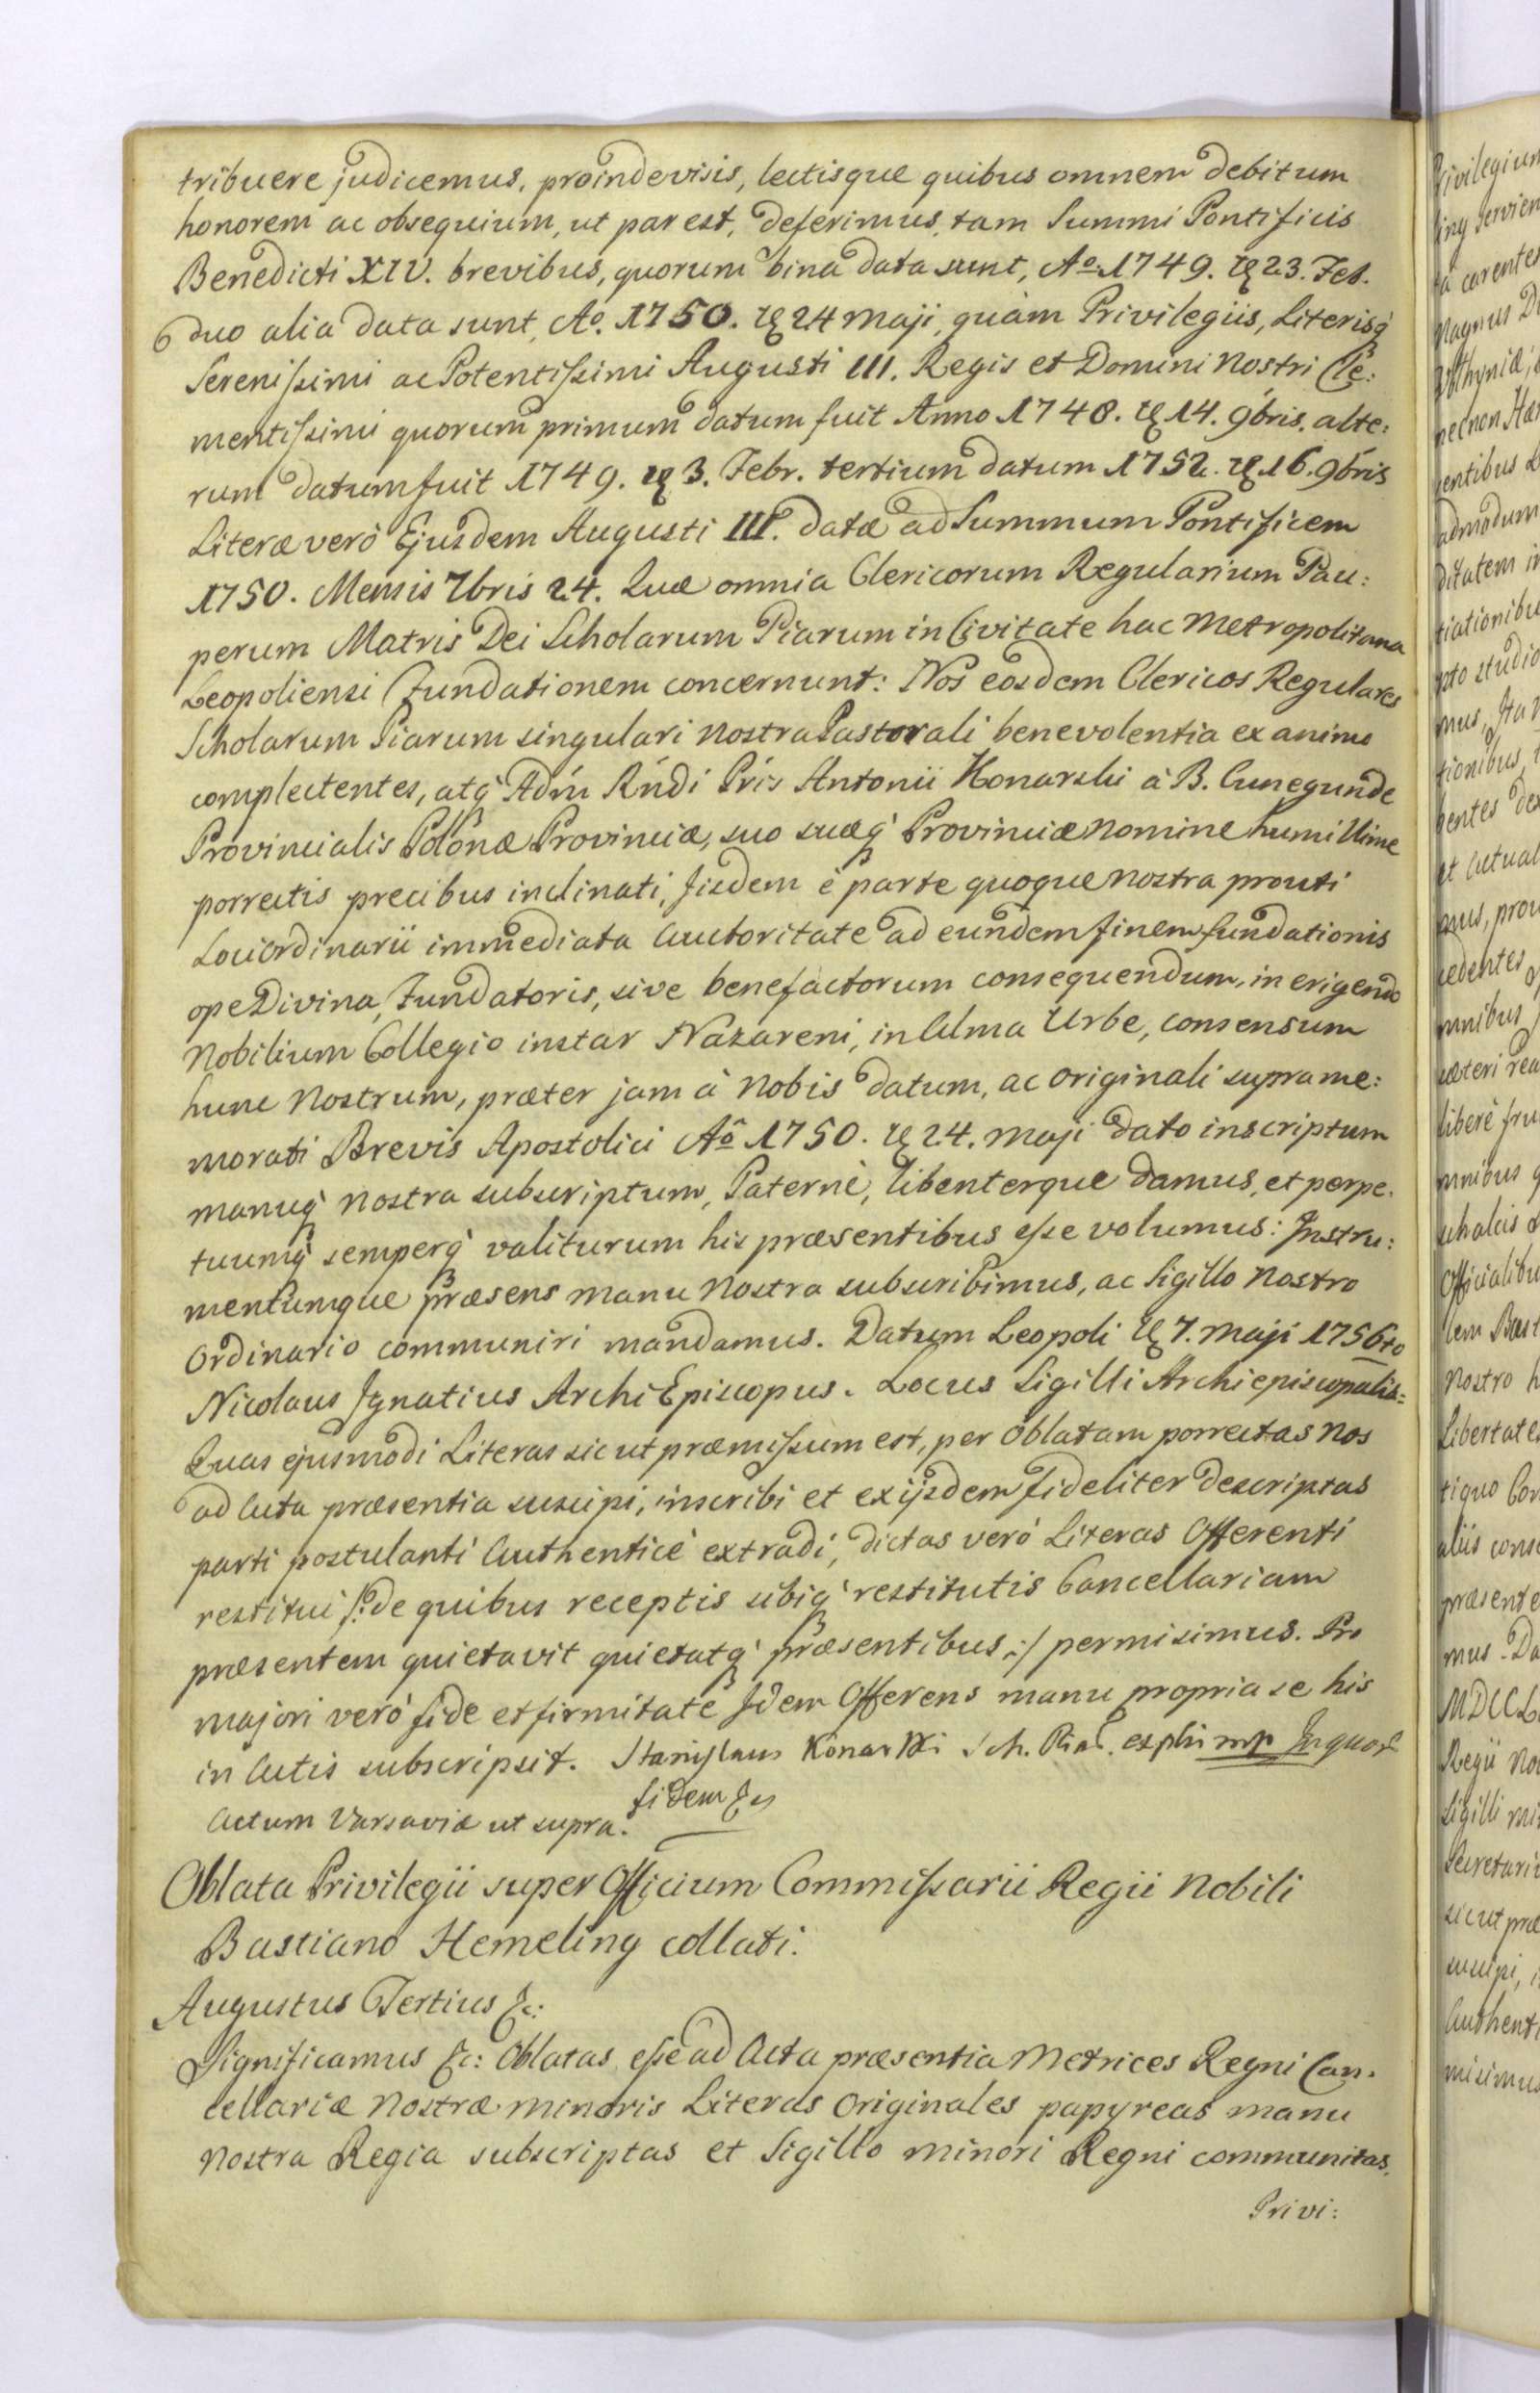 tribuere judicemus, proinde visis, lectisque quibus omnem debitum
honorem ac obsequium, ut par est, deferimus, tam Summi Pontificis
Benedicti XIV. brevibus, quorum bina data sunt, Aº 1749. 23. Feb.
duo alia data sunt, Aº. 1750. 24 Maji, quàm Privilegiis, Literisq́
Serenissimi ac Potentissimi Augusti III. Regis et Domini Nostri Cle:
mentissimi quorum primum datum fuit Anno 1748. 14. 9bris. alte:
rum datum fuit 1749. 3. Febr. tertium datum 1752. 16. 9bris
Literæ verò Ejusdem Augusti III. datæ ad Summum Pontificem
1750. Mensis 7bris 24. Quæ omnia Clericorum Regularium Pau:
perum Matris Dei Scholarum Piarum in Civitate hac Metropolitana
Leopoliensi Fundationem concernunt: Nos eosdem Clericos Regulares
Scholarum Piarum singulari Nostra Pastorali benevolentia ex animo
complectentes, atq́ Adm̃ Rńdi Pris Antonii Konarski à B. Cunegunde
Provincialis Polonæ Provinciæ, suo suæq́ Provinciæ nomine humillime
porrectis precibus inclinati, Jisdem è parte quoque Nostra prouti
Loci Ordinarii immediata Auctoritate ad eundem finem fundationis
ope Divina, Fundatoris, sive benefactorum consequendum, in erigendo
Nobilium Collegio instar Nazareni, in Alma Urbe, consensum
hunc Nostrum, præter jam à Nobis datum, ac originali suprame:
morati Brevis Apostolici Aº 1750. 24. Maji dato inscriptum
manuq́ Nostra subscriptum, Paternè, libenterque damus, et perpe.
tuumq́ semperq́ valiturum his præsentibus esse volumus: Jnstru:
mentumque præsens manu Nostra subscribimus, ac Sigillo Nostro
Ordinario communiri mandamus. Datum Leopoli 7. Maji 1756to
Nicolaus Jgnatius ArchiEpiscopus. Locus Sigilli Archiepiscopalis:
Quas ejusmodi Literas sicut præmissum est, per Oblatam porrectas Nos
ad Acta præsentia suscipi, inscribi et ex ijsdem fideliter descriptas
parti postulanti Authenticè extradi, dictas verò Literas Offerenti
restitui /: de quibus receptis sibiq́ restitutis Cancellariam
præsentem quietavit quietatq́ præsentibus :/ permisimus. Pro
majori verò fide et firmitate Jdem Offerens manu propria se his
in Actis subscripsit. Stanislaus Konarski Sch. Piar. mp Jn quor
fidem &
Actum Varsaviæ ut supra.
Oblata Privilegii super Officium Commissarii Regii Nobili
Bastiano Hemeling collati.
Augustus Tertius &c:
Significamus &c: Oblatas esse ad Acta præsentia Metrices Regni Can.
cellariæ Nostræ minoris Literas Originales papyreas manu
Nostra Regia subscriptas et Sigillo minori Regni communitas,
Privi: